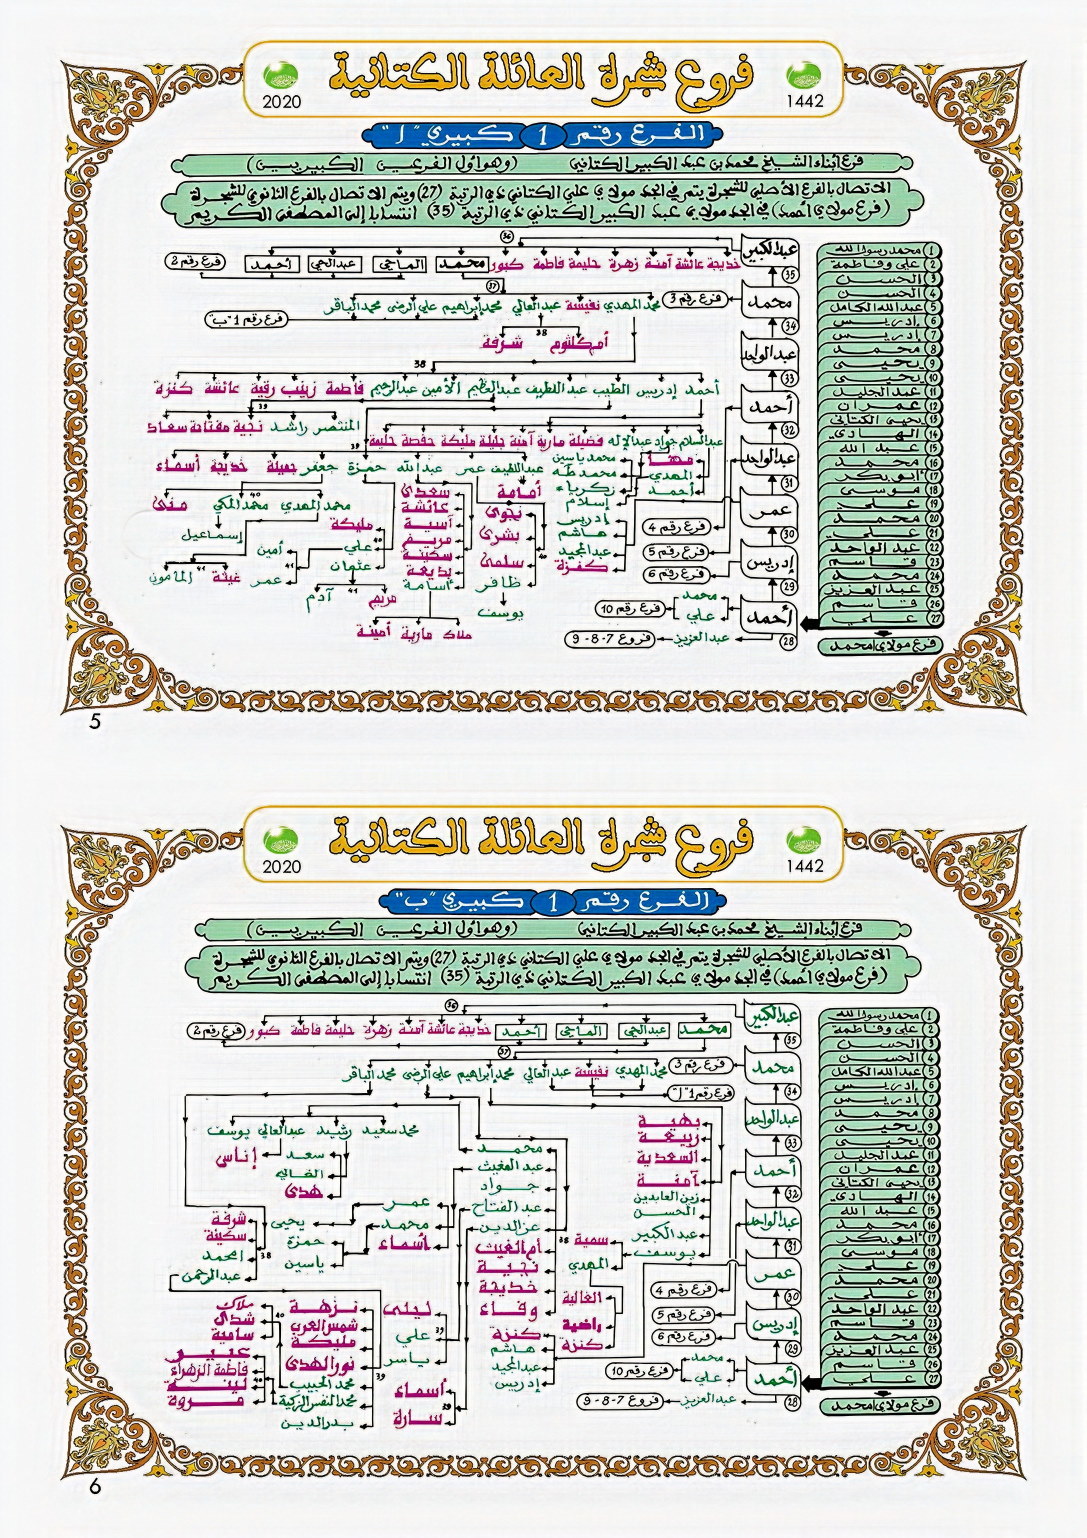 فروع شجرة العائلة الكتانية
2020
1442
الفرع رقم 1 كبيري "أ"
فرع أبناء الشيخ محمد بن عبد الكبير الكتاني (وهو أول الفرعين الكبيريين)
الاتصال بالفرع الأصلي للشجرة يتم في الجد مولاي علي الكتاني ذي الرتبة (27) ويتم الاتصال بالفرع الثانوي للشجرة
(فرع مولاي أحمد) في الجد مولاي عبد الكبير الكتاني ذي الرتبة (35) انتسابا إلى المصطفى الكريم
36
عبد الكبير 35
خديجة عائشة آمنة زهرة حليمة فاطمة كبور
محمد الماحي عبد الحي أحمد فرع رقم 2
37
محمد 34
فرع رقم 3
محمد المهدي نفيسة عبد العالي محمد إبراهيم علي الرضى محمد الباقر
فرع رقم 1 "ب"
أم كلثوم 38 شرفة
عبد الواحد 33
38
أحمد إدريس الطيب عبد اللطيف عبد العليم الأمين عبد الرحيم فاطمة زينب رقية عائشة كنزة
أحمد 32
39
المنتصر راشد نجية مفتاحة سعاد
عبد السلام جواد عبد الإله فضيلة مارية آمنة جليلة مليكة حفصة حليمة
39
عبد الواحد 31
عبد اللطيف عمر عبد الله حمزة جعفر جميلة خديجة أسماء
محمد ياسين
مها
محمد طه
المهدي
زكرياء
أحمد
إسلام
إدريس
هاشم
عبد المجيد
كنزة
أمامة
نجوى
بشرى
سلمى
40
ظافر
يوسف
سعدى
عائشة
آسية
مريم
سكينة
بديعة
أسامة
ملاك مارية أمينة
محمد المهدي محمد المكي 40 منى
إسماعيل
مليكة
علي 40
عثمان
أمين
41
عمر
41 41
غيثة المامون
مريم 41 آدم
عمر 30
فرع رقم 4
فرع رقم 5
إدريس 29
فرع رقم 6
محمد
علي
فرع رقم 10
أحمد 28
عبد العزيز
فروع 7-8-9
1 محمد رسول الله
2 علي وفاطمة
3 الحسن
4 الحسن
5 عبد الله الكامل
6 إدريس
7 إدريس
8 محمد
9 يحيى
10 يحيى
11 عبد الجليل
12 عمران
13 يحيى الكتاني
14 الهادي
15 عبد الله
16 محمد
17 أبو بكر
18 موسى
19 علي
20 محمد
21 علي
22 عبد الواحد
23 قاسم
24 محمد
25 عبد العزيز
26 قاسم
27 علي
فرع مولاي امحمد
5
فروع شجرة العائلة الكتانية
2020
1442
الفرع رقم 1 كبيري "ب"
فرع أبناء الشيخ محمد بن عبد الكبير الكتاني (وهو أول الفرعين الكبيريين)
الاتصال بالفرع الأصلي للشجرة يتم في الجد مولاي علي الكتاني ذي الرتبة (27) ويتم الاتصال بالفرع الثانوي للشجرة
(فرع مولاي أحمد) في الجد مولاي عبد الكبير الكتاني ذي الرتبة (35) انتسابا إلى المصطفى الكريم
36
عبد الكبير 35
محمد عبد الحي الماحي أحمد خديجة عائشة آمنة زهرة حليمة فاطمة كبور فرع رقم 2
37
محمد 34
فرع رقم 3
محمد المهدي نفيسة عبد العالي محمد إبراهيم علي الرضى محمد الباقر
فرع رقم 1 "أ"
عبد الواحد 33
أحمد 32
عبد الواحد 31
عمر 30
إدريس 29
أحمد 28
بهية
ربيعة
السعدية
آمنة
زين العابدين
الحسن
عبد الكبير
يوسف
38
سمية
المهدي
الغالية
راضية
كنزة
محمد
عبد المغيث
جواد
عبد الفتاح
عز الدين
أم الغيث
نجية
خديجة
وفاء
كنزة
هاشم
عبد المجيد
إدريس
محمد سعيد رشيد عبد العالي يوسف
سعد
إناس
الغالي
هدى
عمر
محمد
أسماء
يحيى
حمزة
ياسين
شرفة
سكينة
امحمد
38
عبد الرحمن
ليلى
علي 39
ياسر
أسماء
سارة 39
نزهة
شمس العرب
مليكة
نور الهدى
محمد الحبيب
محمد النفس الزكية
بدر الدين
39
ملاك 40
شذى
سامية
عبير
فاطمة الزهراء
لينة 40
مروة
فرع رقم 4
فرع رقم 5
فرع رقم 6
محمد
علي
فرع رقم 10
عبد العزيز
فروع 7-8-9
1 محمد رسول الله
2 علي وفاطمة
3 الحسن
4 الحسن
5 عبد الله الكامل
6 إدريس
7 إدريس
8 محمد
9 يحيى
10 يحيى
11 عبد الجليل
12 عمران
13 يحيى الكتاني
14 الهادي
15 عبد الله
16 محمد
17 أبو بكر
18 موسى
19 علي
20 محمد
21 علي
22 عبد الواحد
23 قاسم
24 محمد
25 عبد العزيز
26 قاسم
27 علي
فرع مولاي امحمد
6